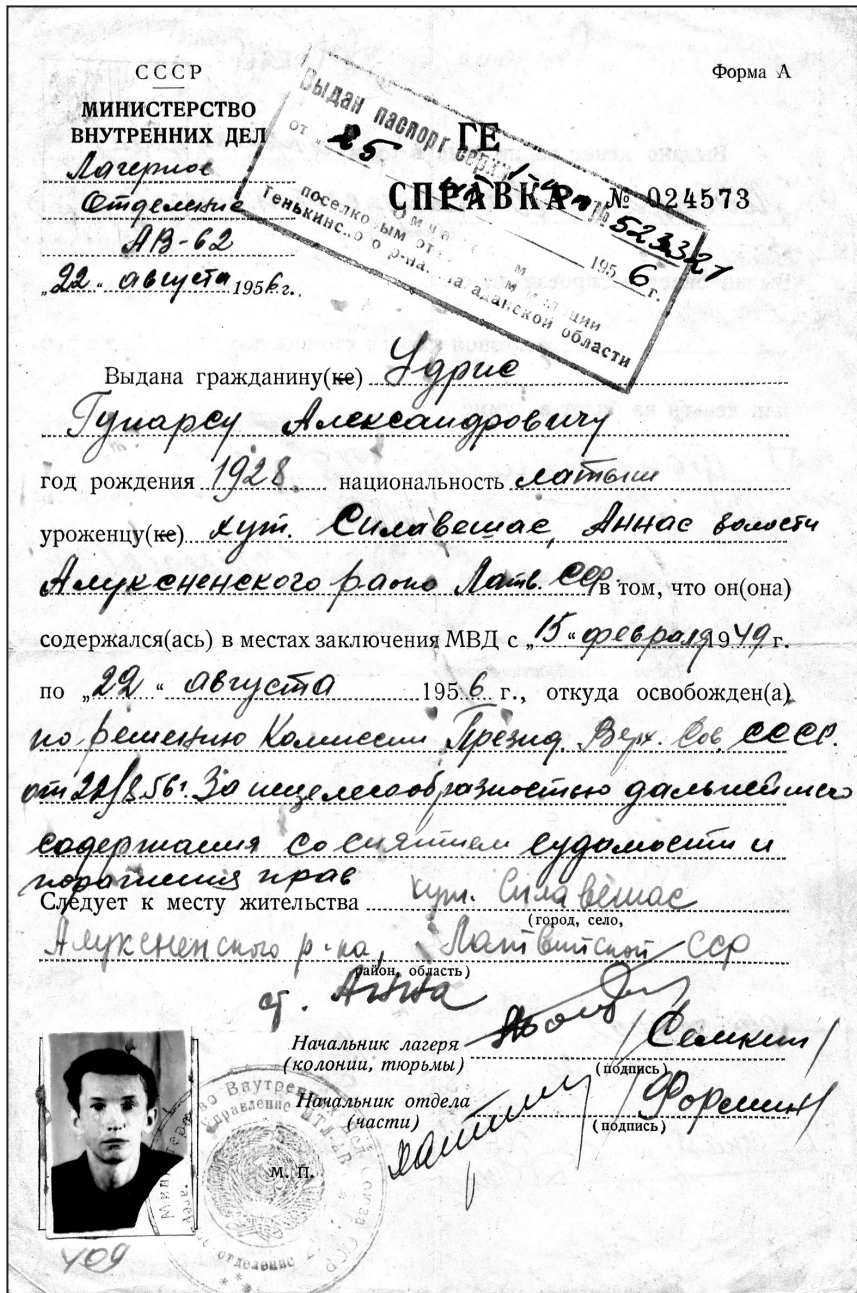 СССР
Форма А
МИНИСТЕРСТВО
ВНУТРЕННИХ ДЕЛ
Лагерное
Отделение
АВ-62
„22“ августа 1956 г.
Выдан паспорт серии
от 25
195 6 г.
поселковым
р-на, Магаданской области
523321
ГЕ
СПРАВКА № 024573
Выдана гражданину(ке) Удрис
Гунарсу Александровичу
год рождения 1928. национальность латыш
уроженцу(ке) хут. Силавешас, Аннас волости
Алуксненского района Латв. ССР. в том, что он(она)
содержался(ась) в местах заключения МВД с „15“ февраля 1949 г.
по „22“ августа 1956 г., откуда освобожден(а)
по решению Комиссии Презид. Верх. Сов. СССР.
от 22/8.56г. За нецелесообразностью дальнейшего
содержания со снятием судимости и
поражения прав
Следует к месту жительства хут. Силавешас
(город, село,
Алуксненского р-на, Латвийской ССР
район, область)
ст. Анна
Начальник лагеря
(колонии, тюрьмы) /Семкин/
(подпись)
Начальник отдела
(части) /Форемин/
(подпись)
М. П.
Министерство Внутренних Дел Союза ССР
Управление ИТЛ
отделение
409